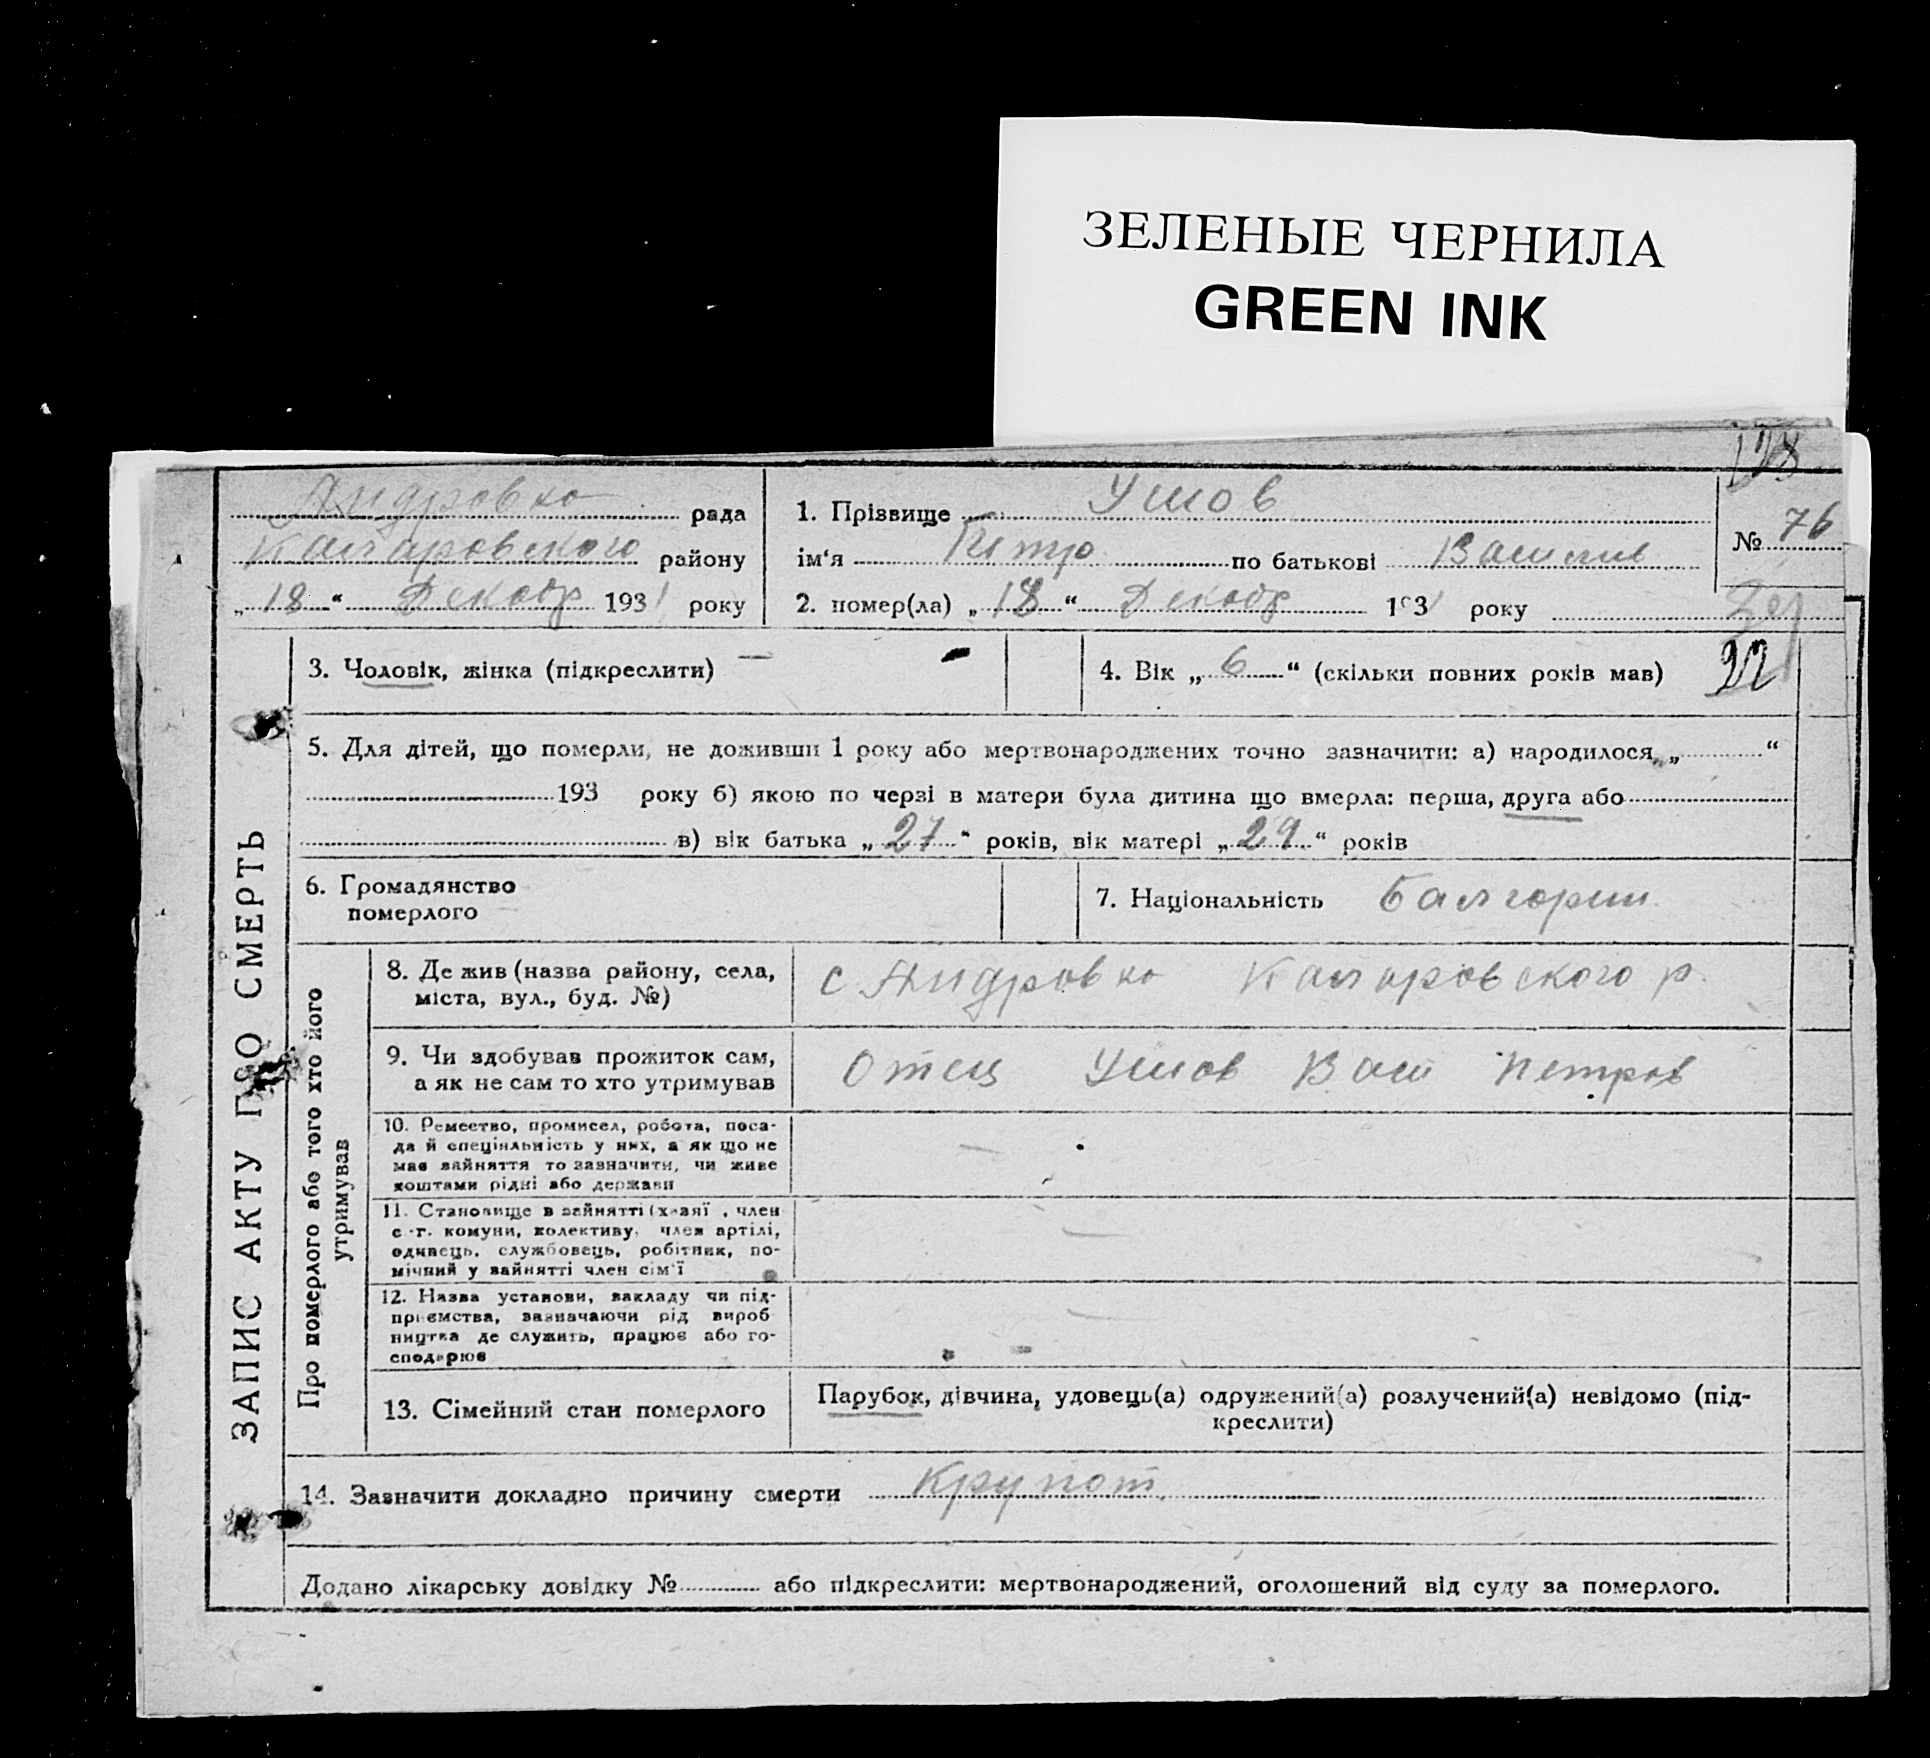 ЗЕЛЕНЫЕ ЧЕРНИЛА
GREEN INK
128
Андровка рада
района району
„18“ Декабр 1931 року
1. Прізвище Ушов
ім'я Петр по батькові Васил
2. помер(ла) „18“ Декабр 1931 року
№ 76
22
3. Чоловік, жінка (підкреслити) —
4. Вік „6“ (скільки повних років мав)
5. Для дітей, що померли, не доживши 1 року або мертвонароджених точно зазначити: а) народилося „ “
193 року б) якою по черзі в матери була дитина що вмерла: перша, друга або
в) вік батька „27“ років, вік матері „29“ років
6. Громадянство
померлого
7. Національність Балгорин
ЗАПИС АКТУ ПРО СМЕРТЬ
Про померлого або того хто його
утримував
8. Де жив (назва району, села,
міста, вул., буд. №)
с Андровка р.
9. Чи здобував прожиток сам,
а як не сам то хто утримував
Отец Ушов Вас Петров
10. Ремество, промисел, робота, поса-
да й спеціяльність у них, а як що не
має зайняття то зазначити, чи живе
коштами рідні або держави
11. Становище в зайнятті (х зяї , член
с.-г. комуни, колективу, член артілі,
одинець, службовець, робітник, по-
мічний у зайнятті член сім'ї
12. Назва установи, закладу чи під-
приємства, зазначаючи рід вироб
ництва де служить, працює або го-
сподарює
13. Сімейний стан померлого
Парубок, дівчина, удовець(а) одружений(а) розлучений(а) невідомо (під-
креслити)
14. Зазначити докладно причину смерти Крупот
Додано лікарську довідку № або підкреслити: мертвонароджений, оголошений від суду за померлого.